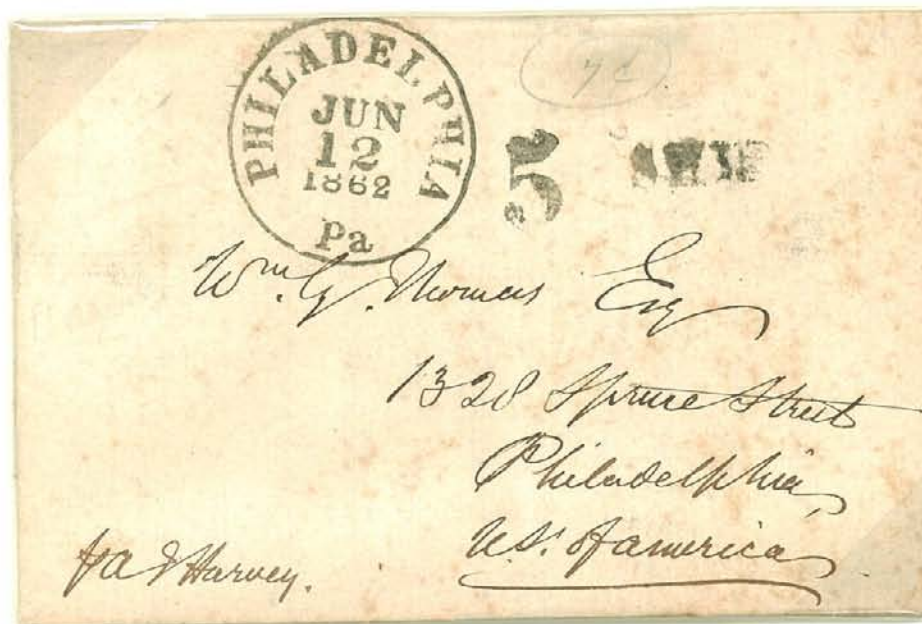 PHILADELPHIA
JUN
12
1862
Pa
5 SHIP
Wm. G. Thomas Esq
1328 Spruce Street
Philadelphia
U.S. of America
Harvey.